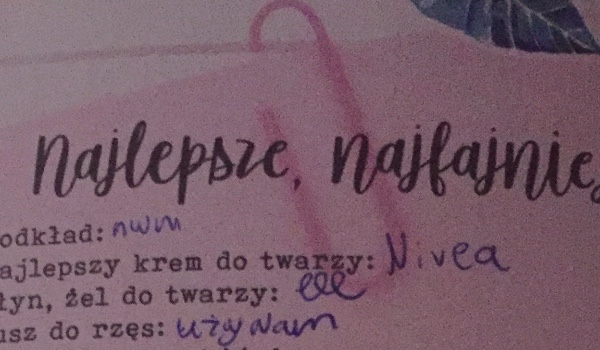 najlepsze, najfajnie
odkład: nwm
ajlepszy krem do twarzy: Nivea
łyn, żel do twarzy: eee
usz do rzęs: używam